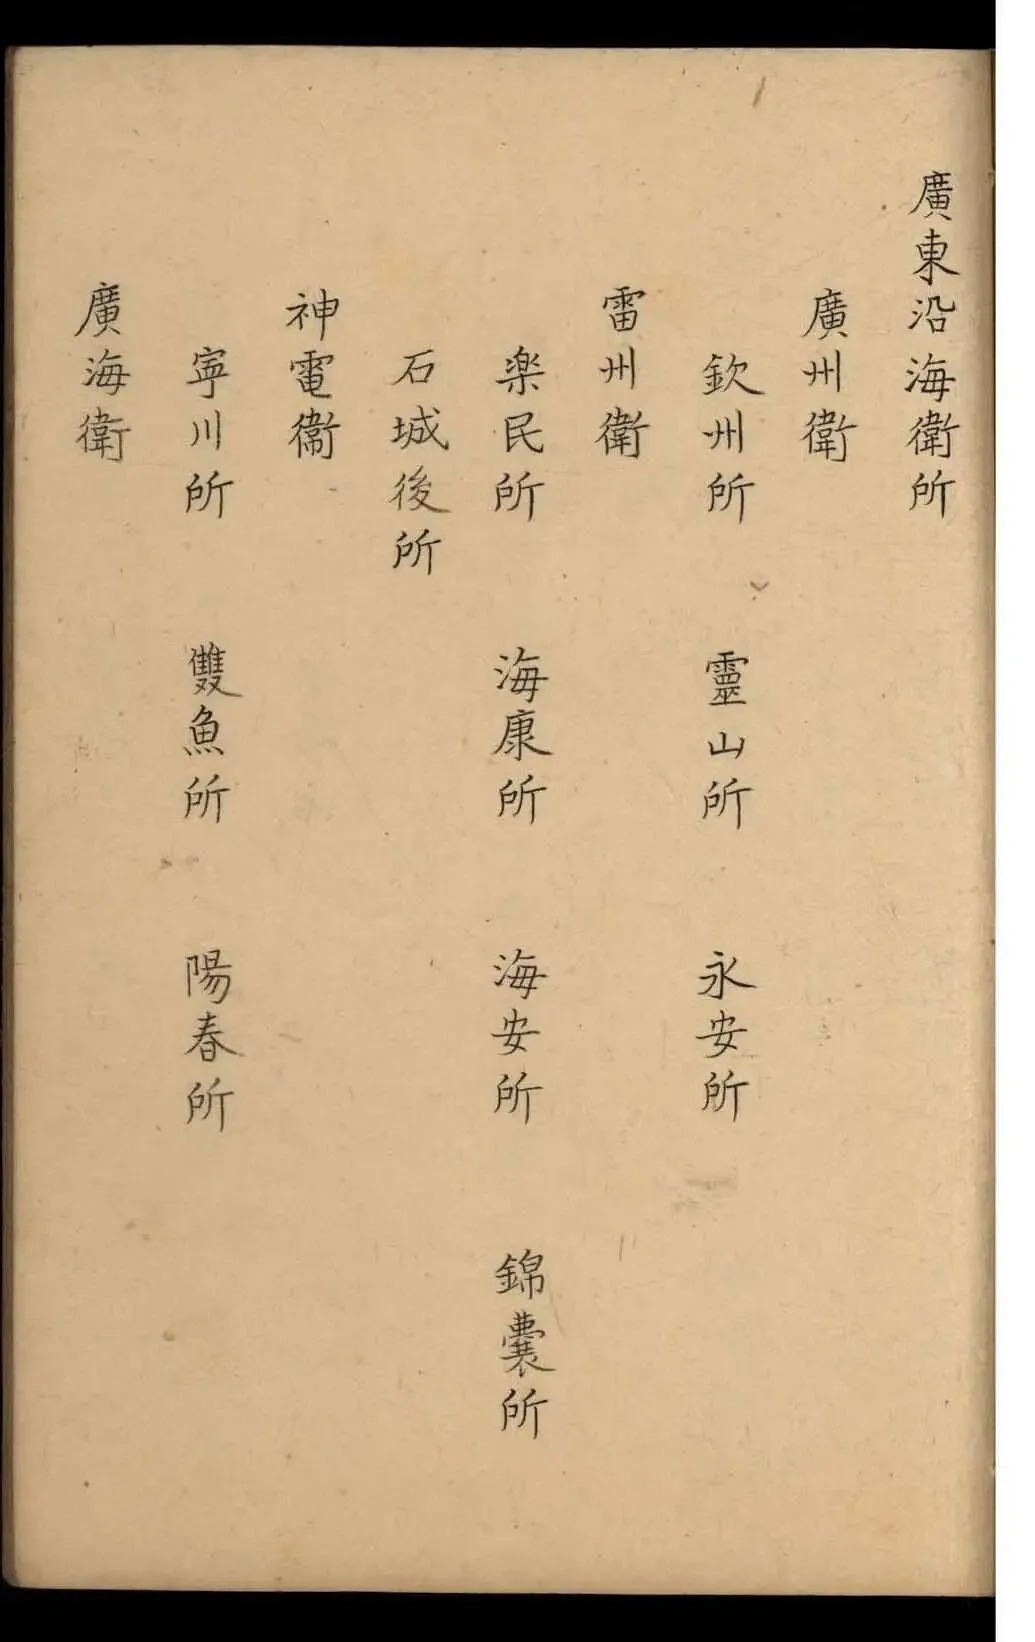 廣東沿海衛所
廣州衛
欽州所　靈山所　永安所
雷州衛
楽民所　海康所　海安所　錦囊所
石城後所
神電衛
寕川所　雙魚所　陽春所
廣海衛